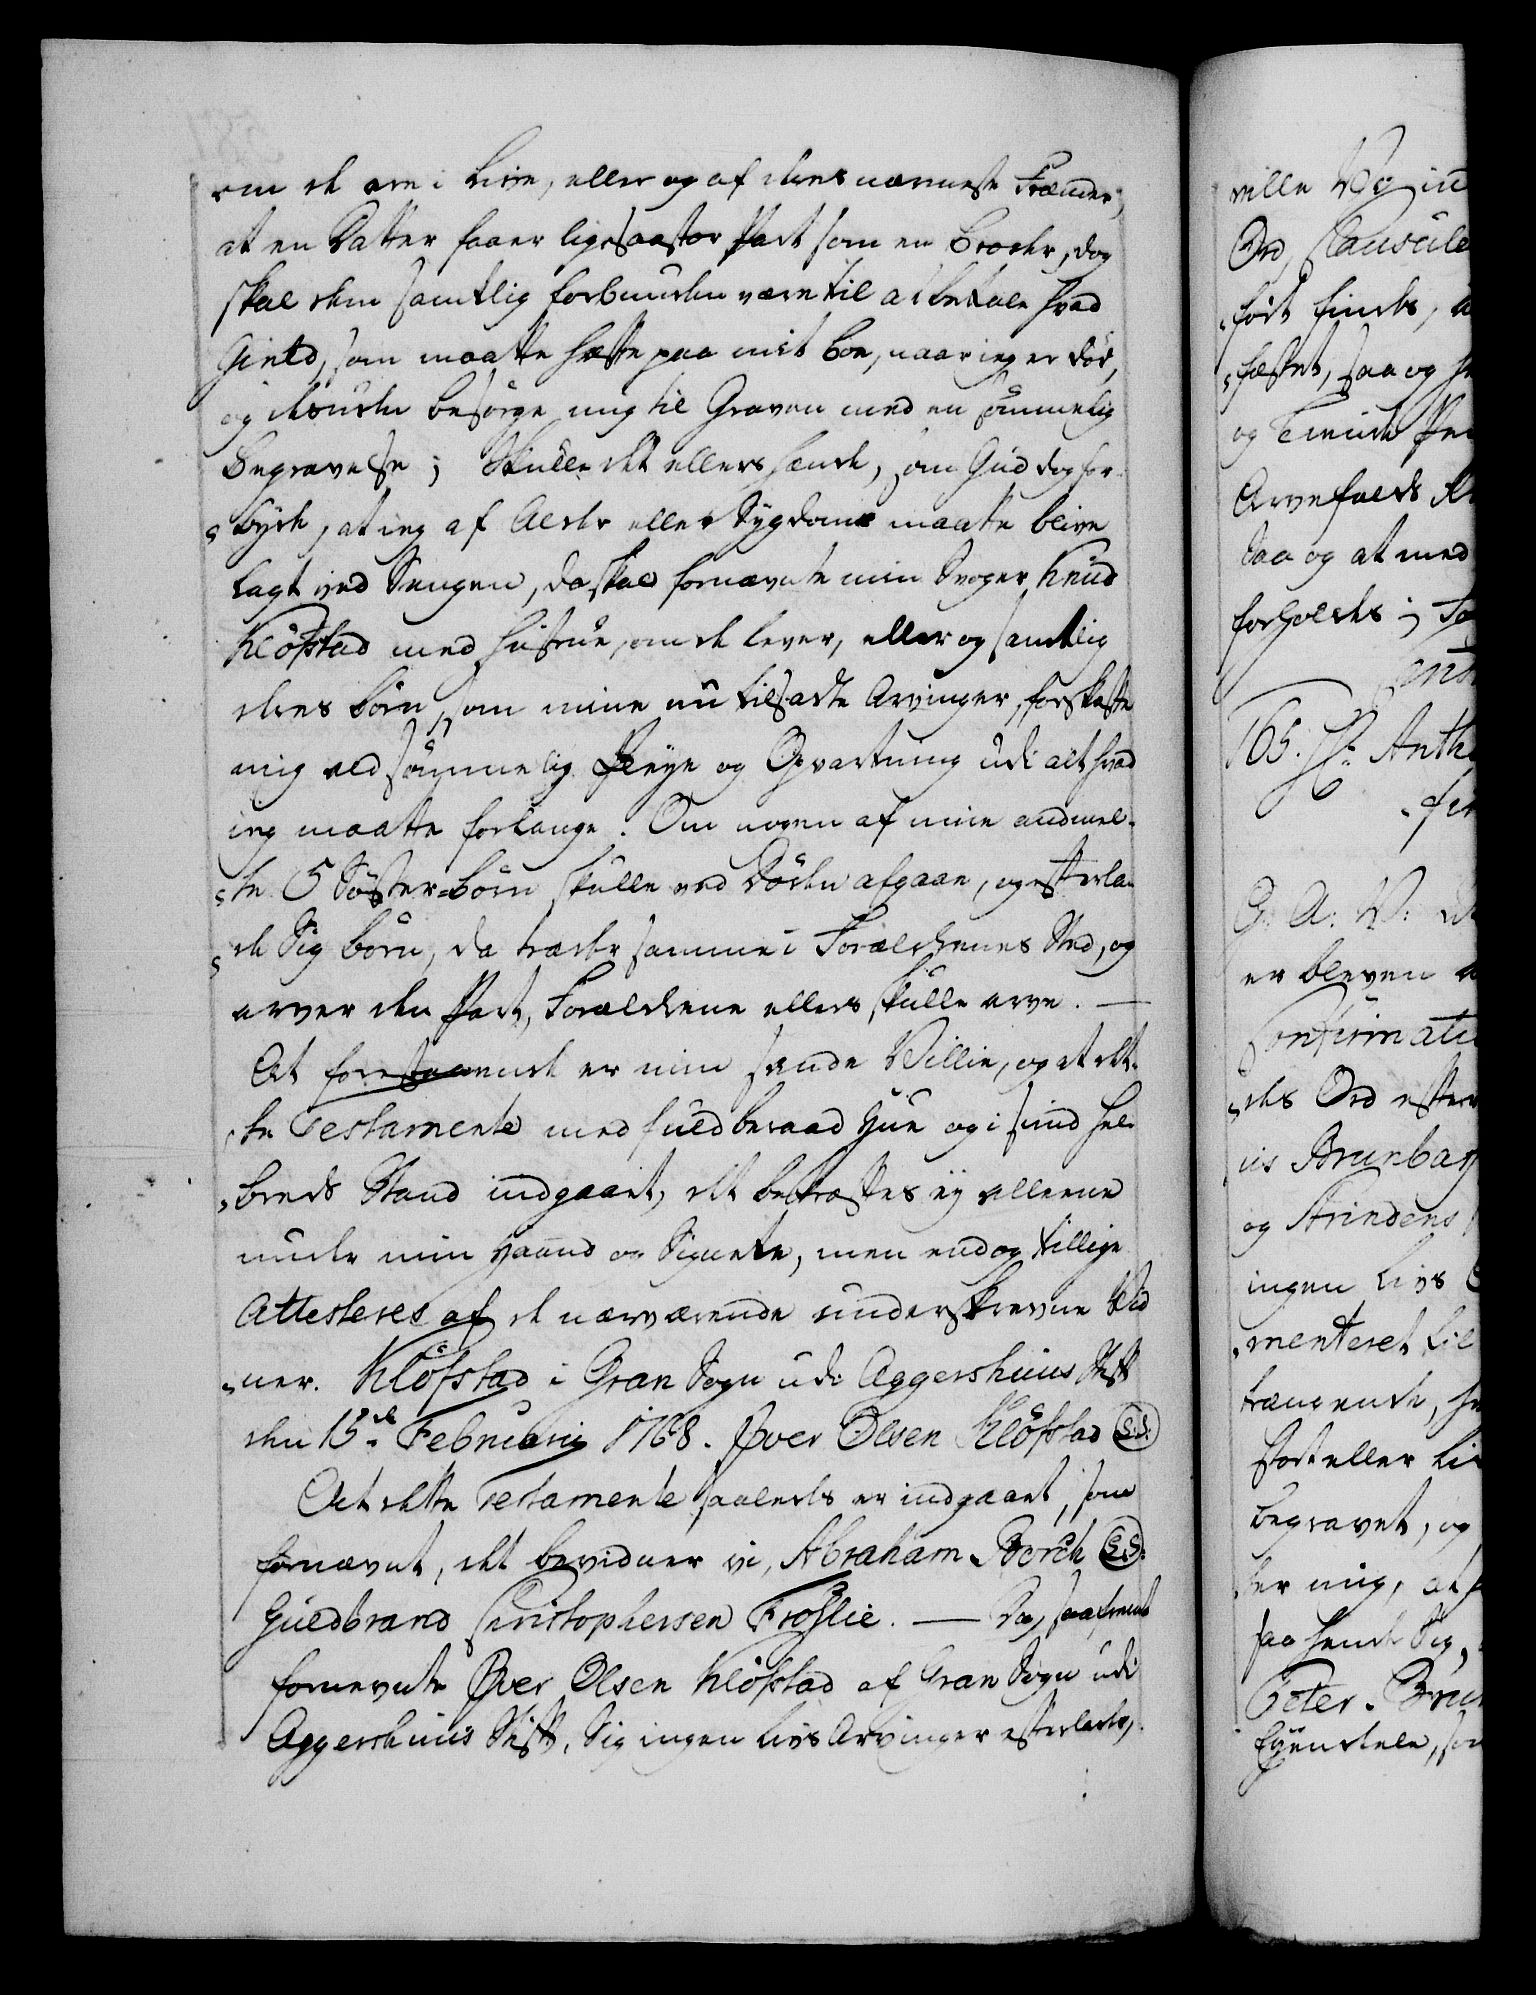 om de ere i Live, eller og af deres nærmeste Frænder,
at en Datter faaer ligesaastor Part som en Broder, dog
skal dem samtlig forbunden være til at betale hvad
Gield, som maatte hæfte paa mit Boe, naar ieg er død,
og desuden besørge mig til Graven med en sømmelig
Begravelse; Skulle det ellers hænde, som Gud dog for-
byde, at ieg af Alder eller Sygdom maatte blive
lagt ved Sengen, da skal fornævnte min Svoger Knud
Kløfstad med Hustrue, om de lever, eller og samtlig
deres Børn, som mine nu tilsadte Arvinger, forskaffe
mig ald sømmelig Pleye og Opvartning udi alt hvad
ieg maatte forlange. Om nogen af mine anmel-
te 5 Søster-Børn skulle ved Døden afgaae, og efterla-
de Sig Børn, da træder samme i Forældrenes Sted, og
arver den Part, Forældrene ellers skulle arve. —
At forestaaende er min sande Villie, og at det-
te Testamente med fuldberaad Hue og i sund Hel-
breds Stand indgaaet, det bekræftes ey alleene
under min Haand og Signete, men endog tillige
Attesteres af de nærværende underskrevne Vid
ner. Kløfstad i Gran Sogn udi Aggershuus Stift
den 15de Februarij 1768. Iver Olsen Kløfstad (L.S.)
At dette Testamente saaledes er indgaaet, som
fornævnt, det bevidner vi, Abraham Borch (L.S.)
Guldbrand Christophersen Frøslie. — Da, saafremt
fornevnte Iver Olsen Kløfstad af Gran Sogn udi
Aggershuus Stift, Sig ingen Livs Arvinger efterlader,
ville Vi
Ord, Clausule
ført findes,
fæstet, saa og
og Tiende
Arvefalds
Saa og at med
forholdes;
165. Hr. Anth
G. A. V.
er bleven
Confirmati
des Ord efter
us Brunbar
og Qvindens
ingen Livs
menteret til
trængende,
stort eller li
begravet, og
ter mig, at
saa hende Sig,
Peter Brun
Eyendele, som